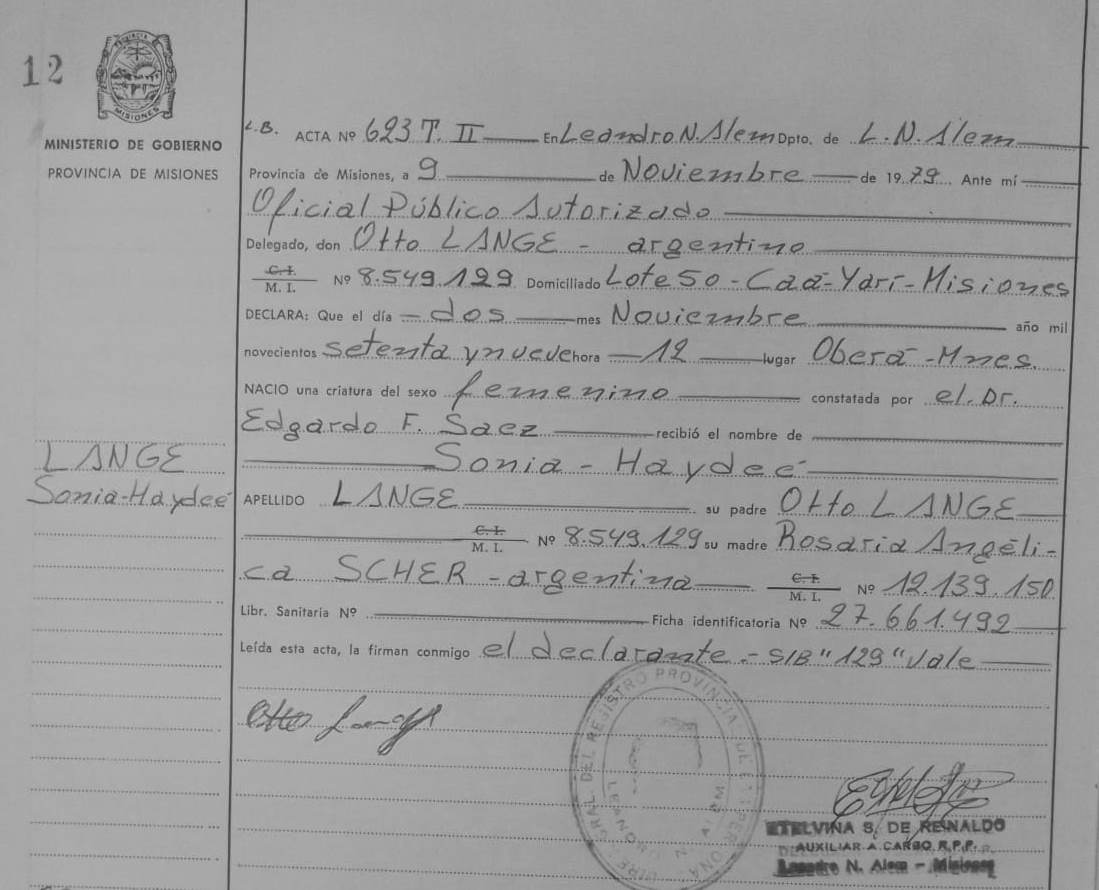 12
PROVINCIA DE
MISIONES
MINISTERIO DE GOBIERNO
PROVINCIA DE MISIONES
L.B. ACTA Nº 623 T. II En Leandro N. Alem Dpto. de L. N. Alem
Provincia de Misiones, a 9 de Noviembre de 1979. Ante mí
Oficial Público Autorizado
Delegado, don Otto LANGE - argentino
C. I. M. I. Nº 8.549.129 Domiciliado Lote 50 - Caá-Yarí - Misiones
DECLARA: Que el día - dos mes Noviembre año mil
novecientos setenta y nueve hora - 12 lugar Oberá - Mnes.
NACIO una criatura del sexo femenino constatada por el. Dr.
Edgardo F. Saez recibió el nombre de
Sonia - Haydeé
LANGE
Sonia-Haydeé
APELLIDO LANGE su padre Otto LANGE
C. I. M. I. Nº 8.549.129 su madre Rosaria Angéli-
ca SCHER - argentina C. I. M. I. Nº 12.139.150
Libr. Sanitaria Nº Ficha identificatoria Nº 27.661.492
Leída esta acta, la firman conmigo el declarante.- S/B "129" Vale
Otto Lange
ETELVINA S. DE REINALDO
AUXILIAR A CARGO R.P.P.
Leandro N. Alem - Misiones